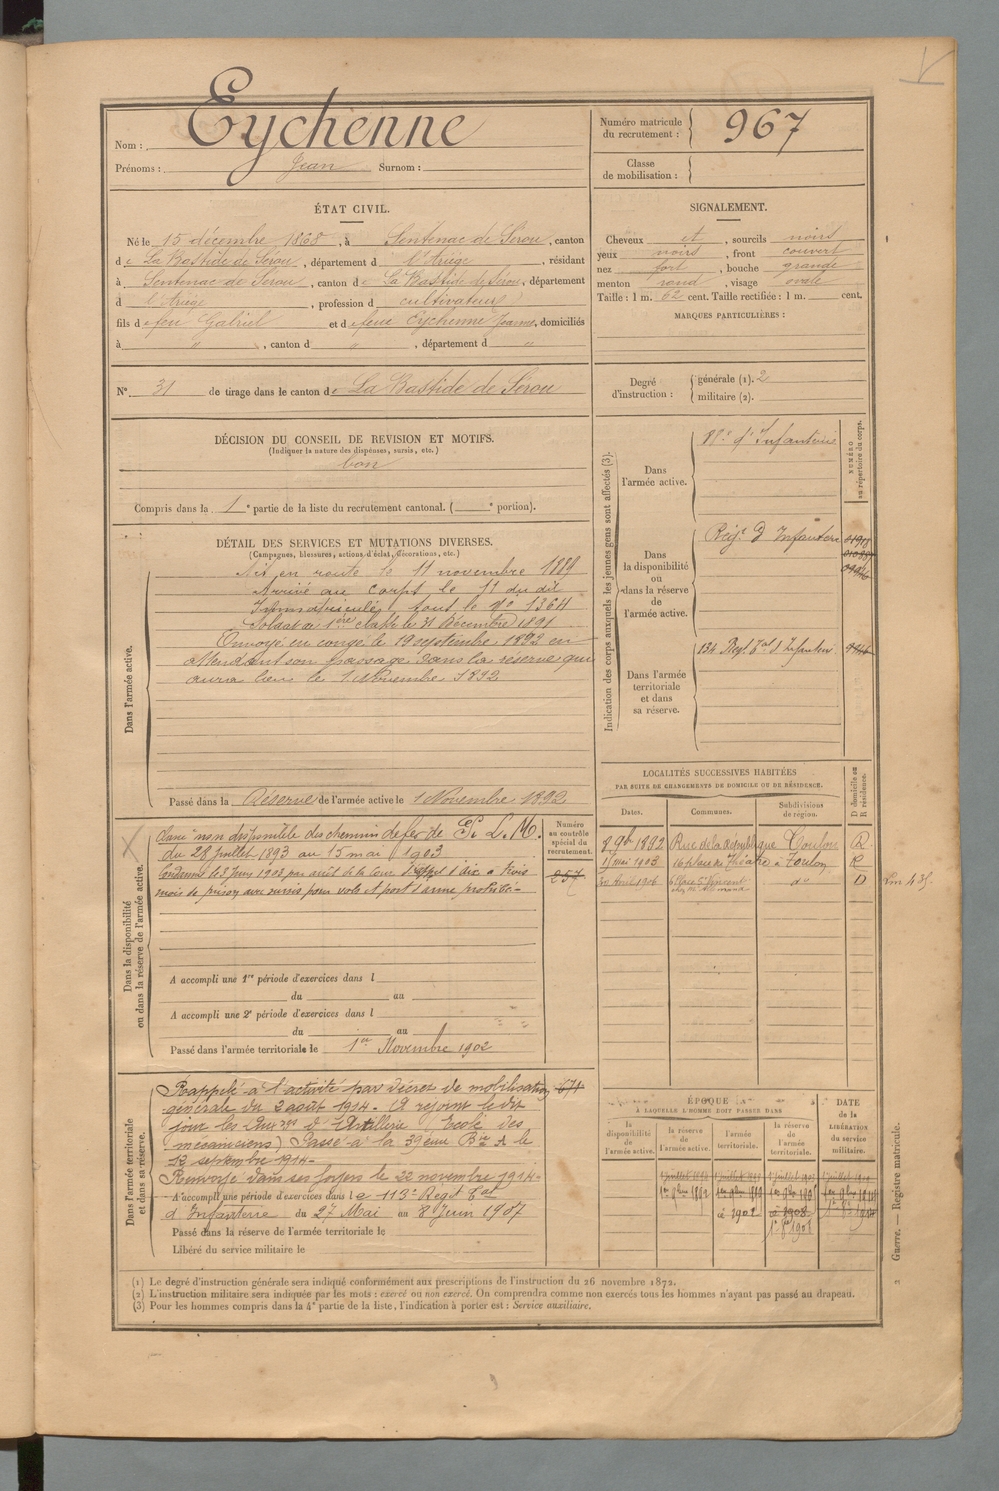 Nom : Eychenne
Prénoms : Jean Surnom :
Numéro matricule du recrutement : 967
Classe de mobilisation :
ÉTAT CIVIL.
Né le 15 décembre 1868, à Sentenac de Sérou, canton
de La Bastide de Sérou, département d l'Ariège, résidant
à Sentenac de Sérou, canton de La Bastide de Sérou, département
d l'Ariège, profession d cultivateur
fils de feu Gabriel et de feue Eychenne Jeanne, domiciliés
à " , canton d " , département d "
N° 31 de tirage dans le canton de La Bastide de Sérou
SIGNALEMENT.
Cheveux et , sourcils noirs
yeux noirs , front couvert
nez fort , bouche grande
menton rond , visage ovale
Taille : 1 m. 62 cent. Taille rectifiée : 1 m. cent.
MARQUES PARTICULIÈRES :
Degré d'instruction : générale (1). 2
militaire (2).
DÉCISION DU CONSEIL DE REVISION ET MOTIFS.
(Indiquer la nature des dispenses, sursis, etc.)
bon
Compris dans la 1e partie de la liste du recrutement cantonal. ( e portion).
DÉTAIL DES SERVICES ET MUTATIONS DIVERSES.
(Campagnes, blessures, actions d'éclat, décorations, etc.)
Dans l'armée active.
Mis en route le 11 novembre 1889
Arrivé au corps le 11 du dit
Immatriculé sous le N° 1364
Soldat de 1ère classe le 31 Décembre 1891
Envoyé en congé le 19 septembre 1892 en
attendant son passage dans la réserve qui
aura lieu le 1 Novembre 1892
Passé dans la Réserve de l'armée active le 1 Novembre 1892
Indication des corps auxquels les jeunes gens sont affectés (3).
NUMÉRO au répertoire du corps.
Dans l'armée active.
d'Infanterie
Dans la disponibilité ou dans la réserve de l'armée active.
Régt d'Infanterie
Dans l'armée territoriale et dans sa réserve.
134 Régt Tal d'Infanterie
LOCALITÉS SUCCESSIVES HABITÉES
PAR SUITE DE CHANGEMENTS DE DOMICILE OU DE RÉSIDENCE.
Dates. Communes. Subdivisions de région. D domicile ou R résidence.
8 9bre 1892 Rue de la République Toulon R
15 mai 1903 16 place du Théâtre à Toulon R
30 Avril 1906 6 Place St Vincent do D
Dans la disponibilité ou dans la réserve de l'armée active.
Numéro au contrôle spécial du recrutement.
257
Classé non disponible des chemins de fer de P. L. M.
du 28 juillet 1893 au 15 mai 1903
Condamné le 5 Juin 1903 par arrêt de la Cour d'appel d'Aix à trois
mois de prison avec sursis pour vols et port d'arme prohibée
A accompli une 1re période d'exercices dans l
du au
A accompli une 2e période d'exercices dans l
du au
Passé dans l'armée territoriale le 1er Novembre 1902
Dans l'armée territoriale et dans sa réserve.
671
Rappelé à l'activité par décret de mobilisation
générale du 2 août 1914. A rejoint le dit
jour les d'Artillerie (école des
mécaniciens) Passé à la 39ème Bie A le
12 septembre 1914.
Renvoyé dans ses foyers le 22 novembre 1914.
A accompli une période d'exercices dans le 113e Régt Tal
d'Infanterie du 27 Mai au 8 Juin 1907
Passé dans la réserve de l'armée territoriale le
Libéré du service militaire le
ÉPOQUE
À LAQUELLE L'HOMME DOIT PASSER DANS
la disponibilité de l'armée active.
la réserve de l'armée active.
l'armée territoriale.
la réserve de l'armée territoriale.
DATE de la LIBÉRATION du service militaire.
(1) Le degré d'instruction générale sera indiqué conformément aux prescriptions de l'instruction du 26 novembre 1872.
(2) L'instruction militaire sera indiquée par les mots : exercé ou non exercé. On comprendra comme non exercés tous les hommes n'ayant pas passé au drapeau.
(3) Pour les hommes compris dans la 4e partie de la liste, l'indication à porter est : Service auxiliaire.
Guerre. — Registre matricule.